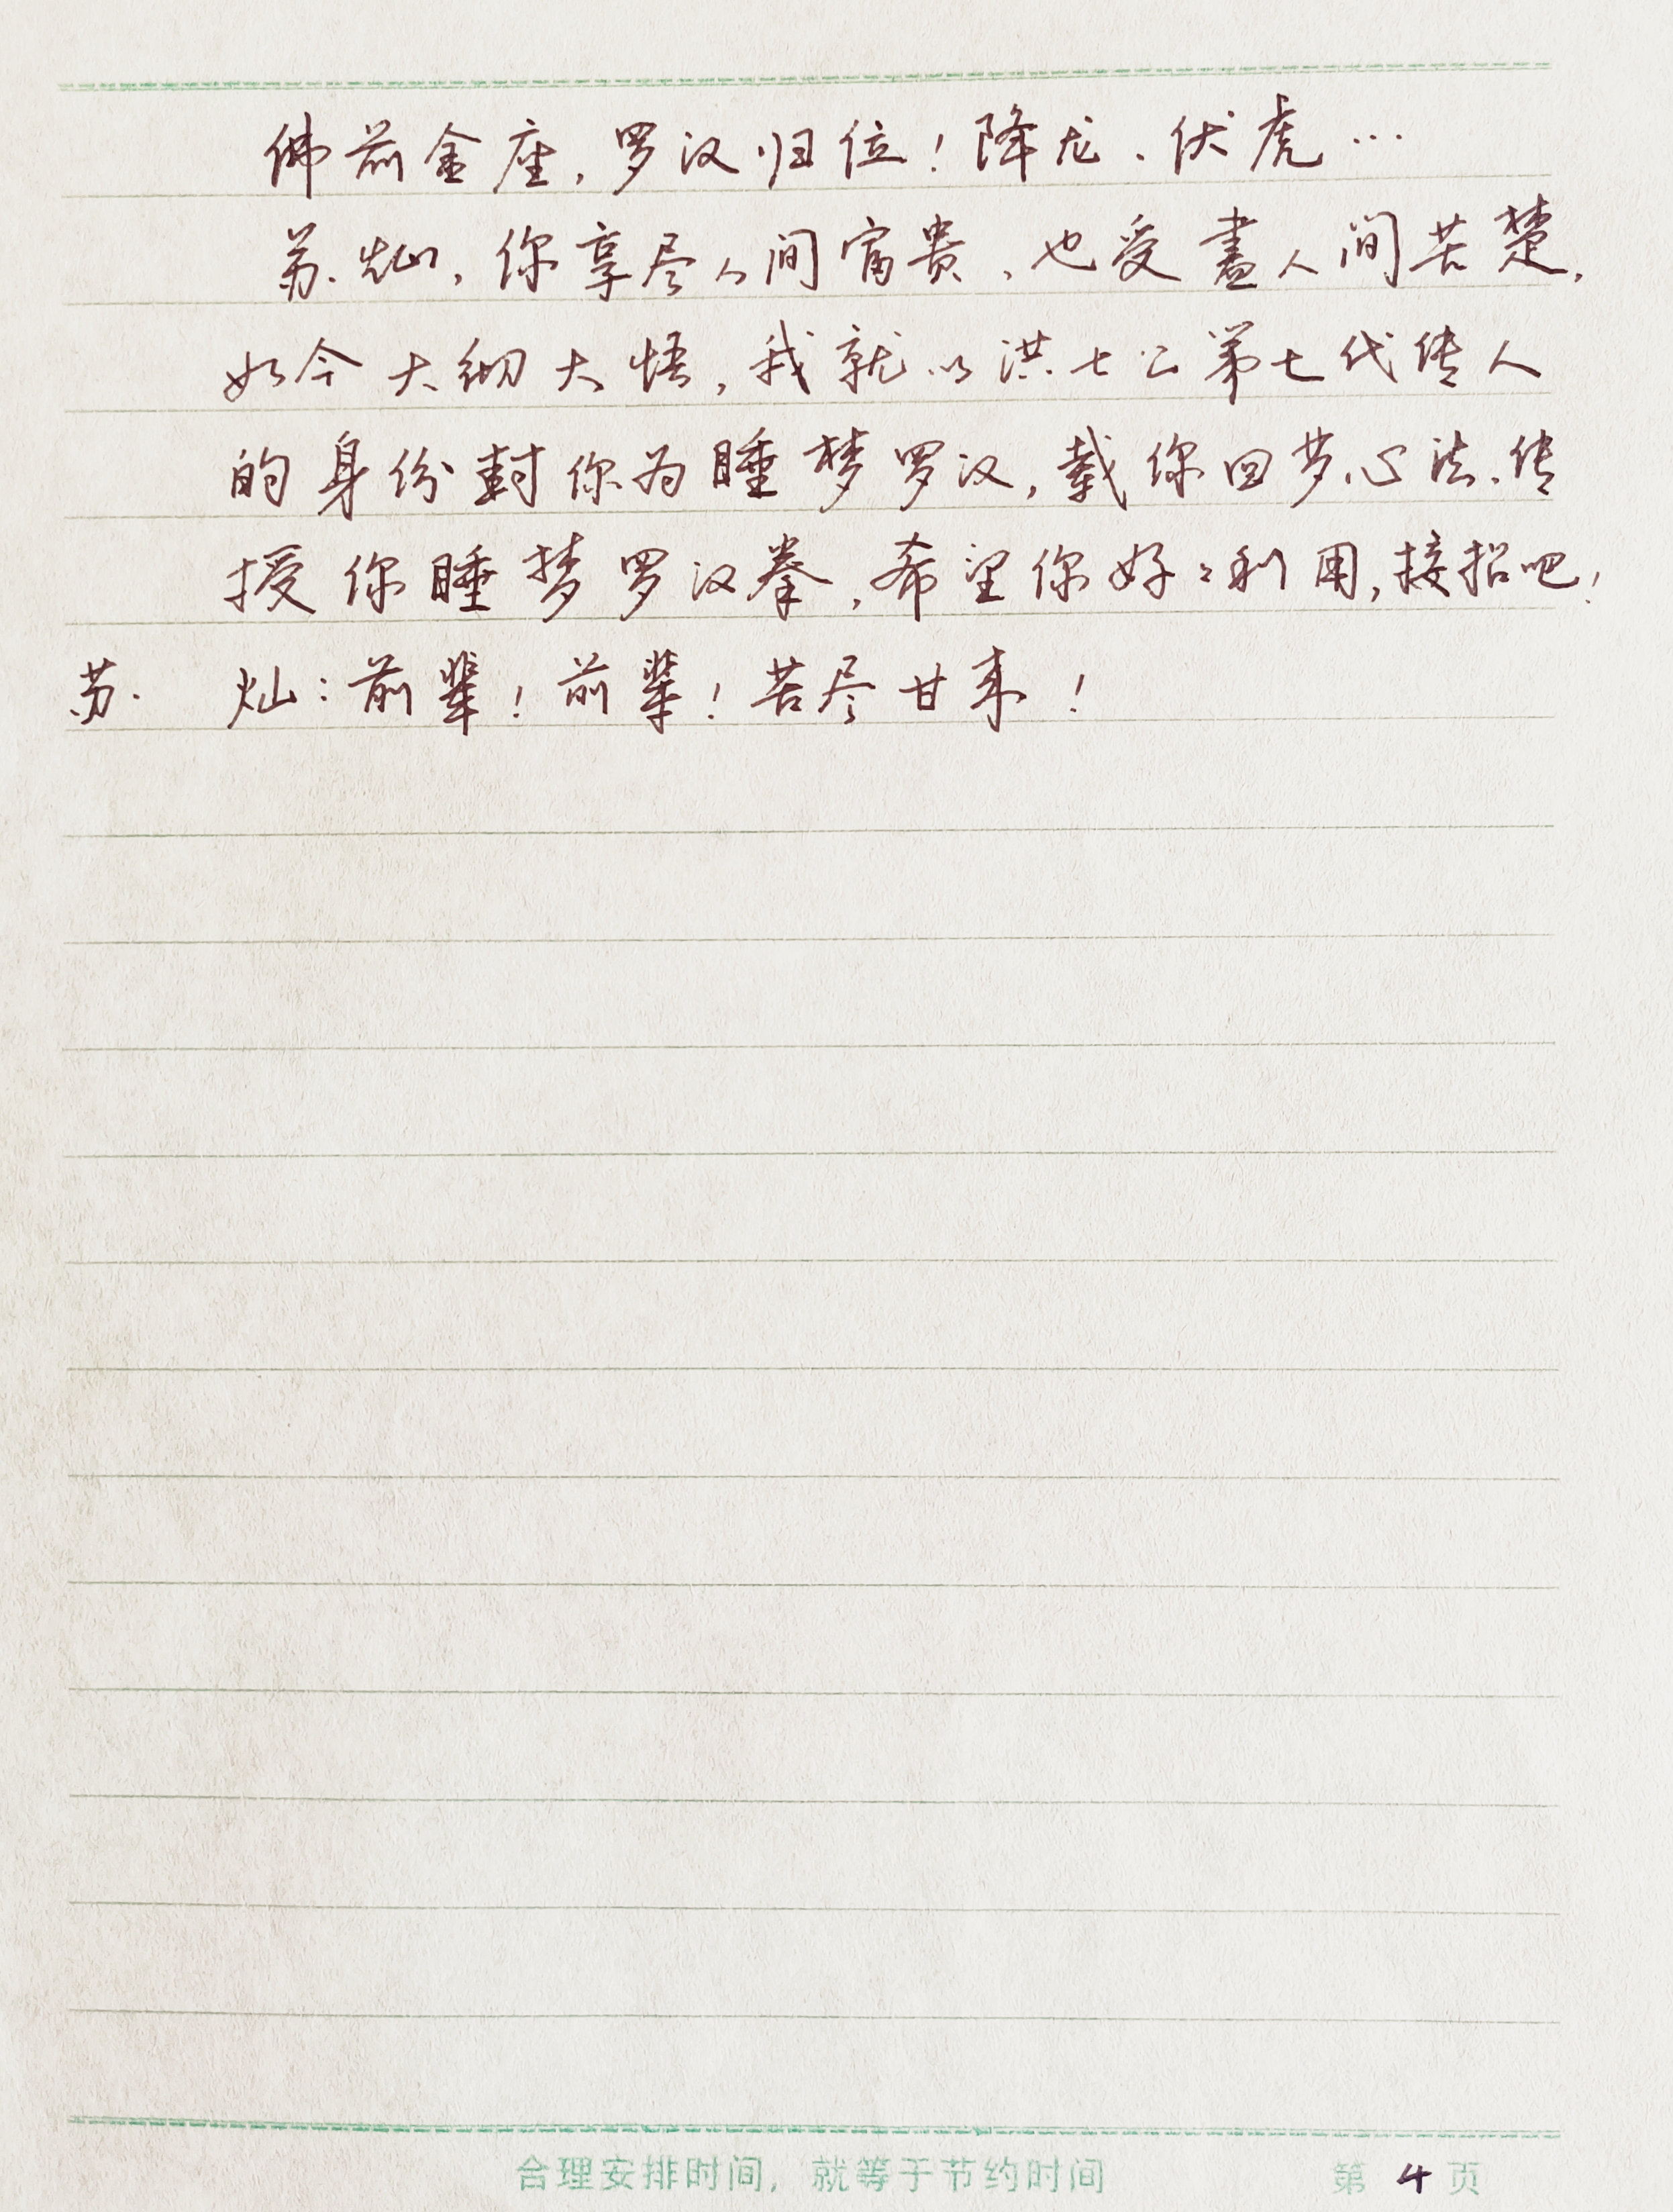 佛前金座，罗汉归位！降龙、伏虎…
苏灿，你享尽人间富贵，也受盡人间苦楚，
如今大彻大悟，我就以洪七公第七代传人
的身份封你为睡梦罗汉，载你回梦心法、传
授你睡梦罗汉拳，希望你好々利用，接招吧！
苏 灿：前辈！前辈！苦尽甘来！
合理安排时间，就等于节约时间 第 4 页